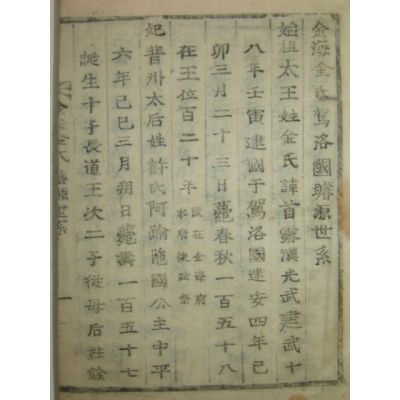 金海金氏駕洛國璿源世系
始祖太王姓金氏諱首露漢光武建武十
八年壬寅建國于駕洛國建安四年己
卯三月二十三日薨春秋一百五十八
在王位百二十年
陵在金海府
本府使致祭
妃普州太后姓許氏阿踰陁國公主中平
六年己巳三月朔日薨壽一百五十七
誕生十子長道王次二子從母后姓餘
金氏 源世系 一